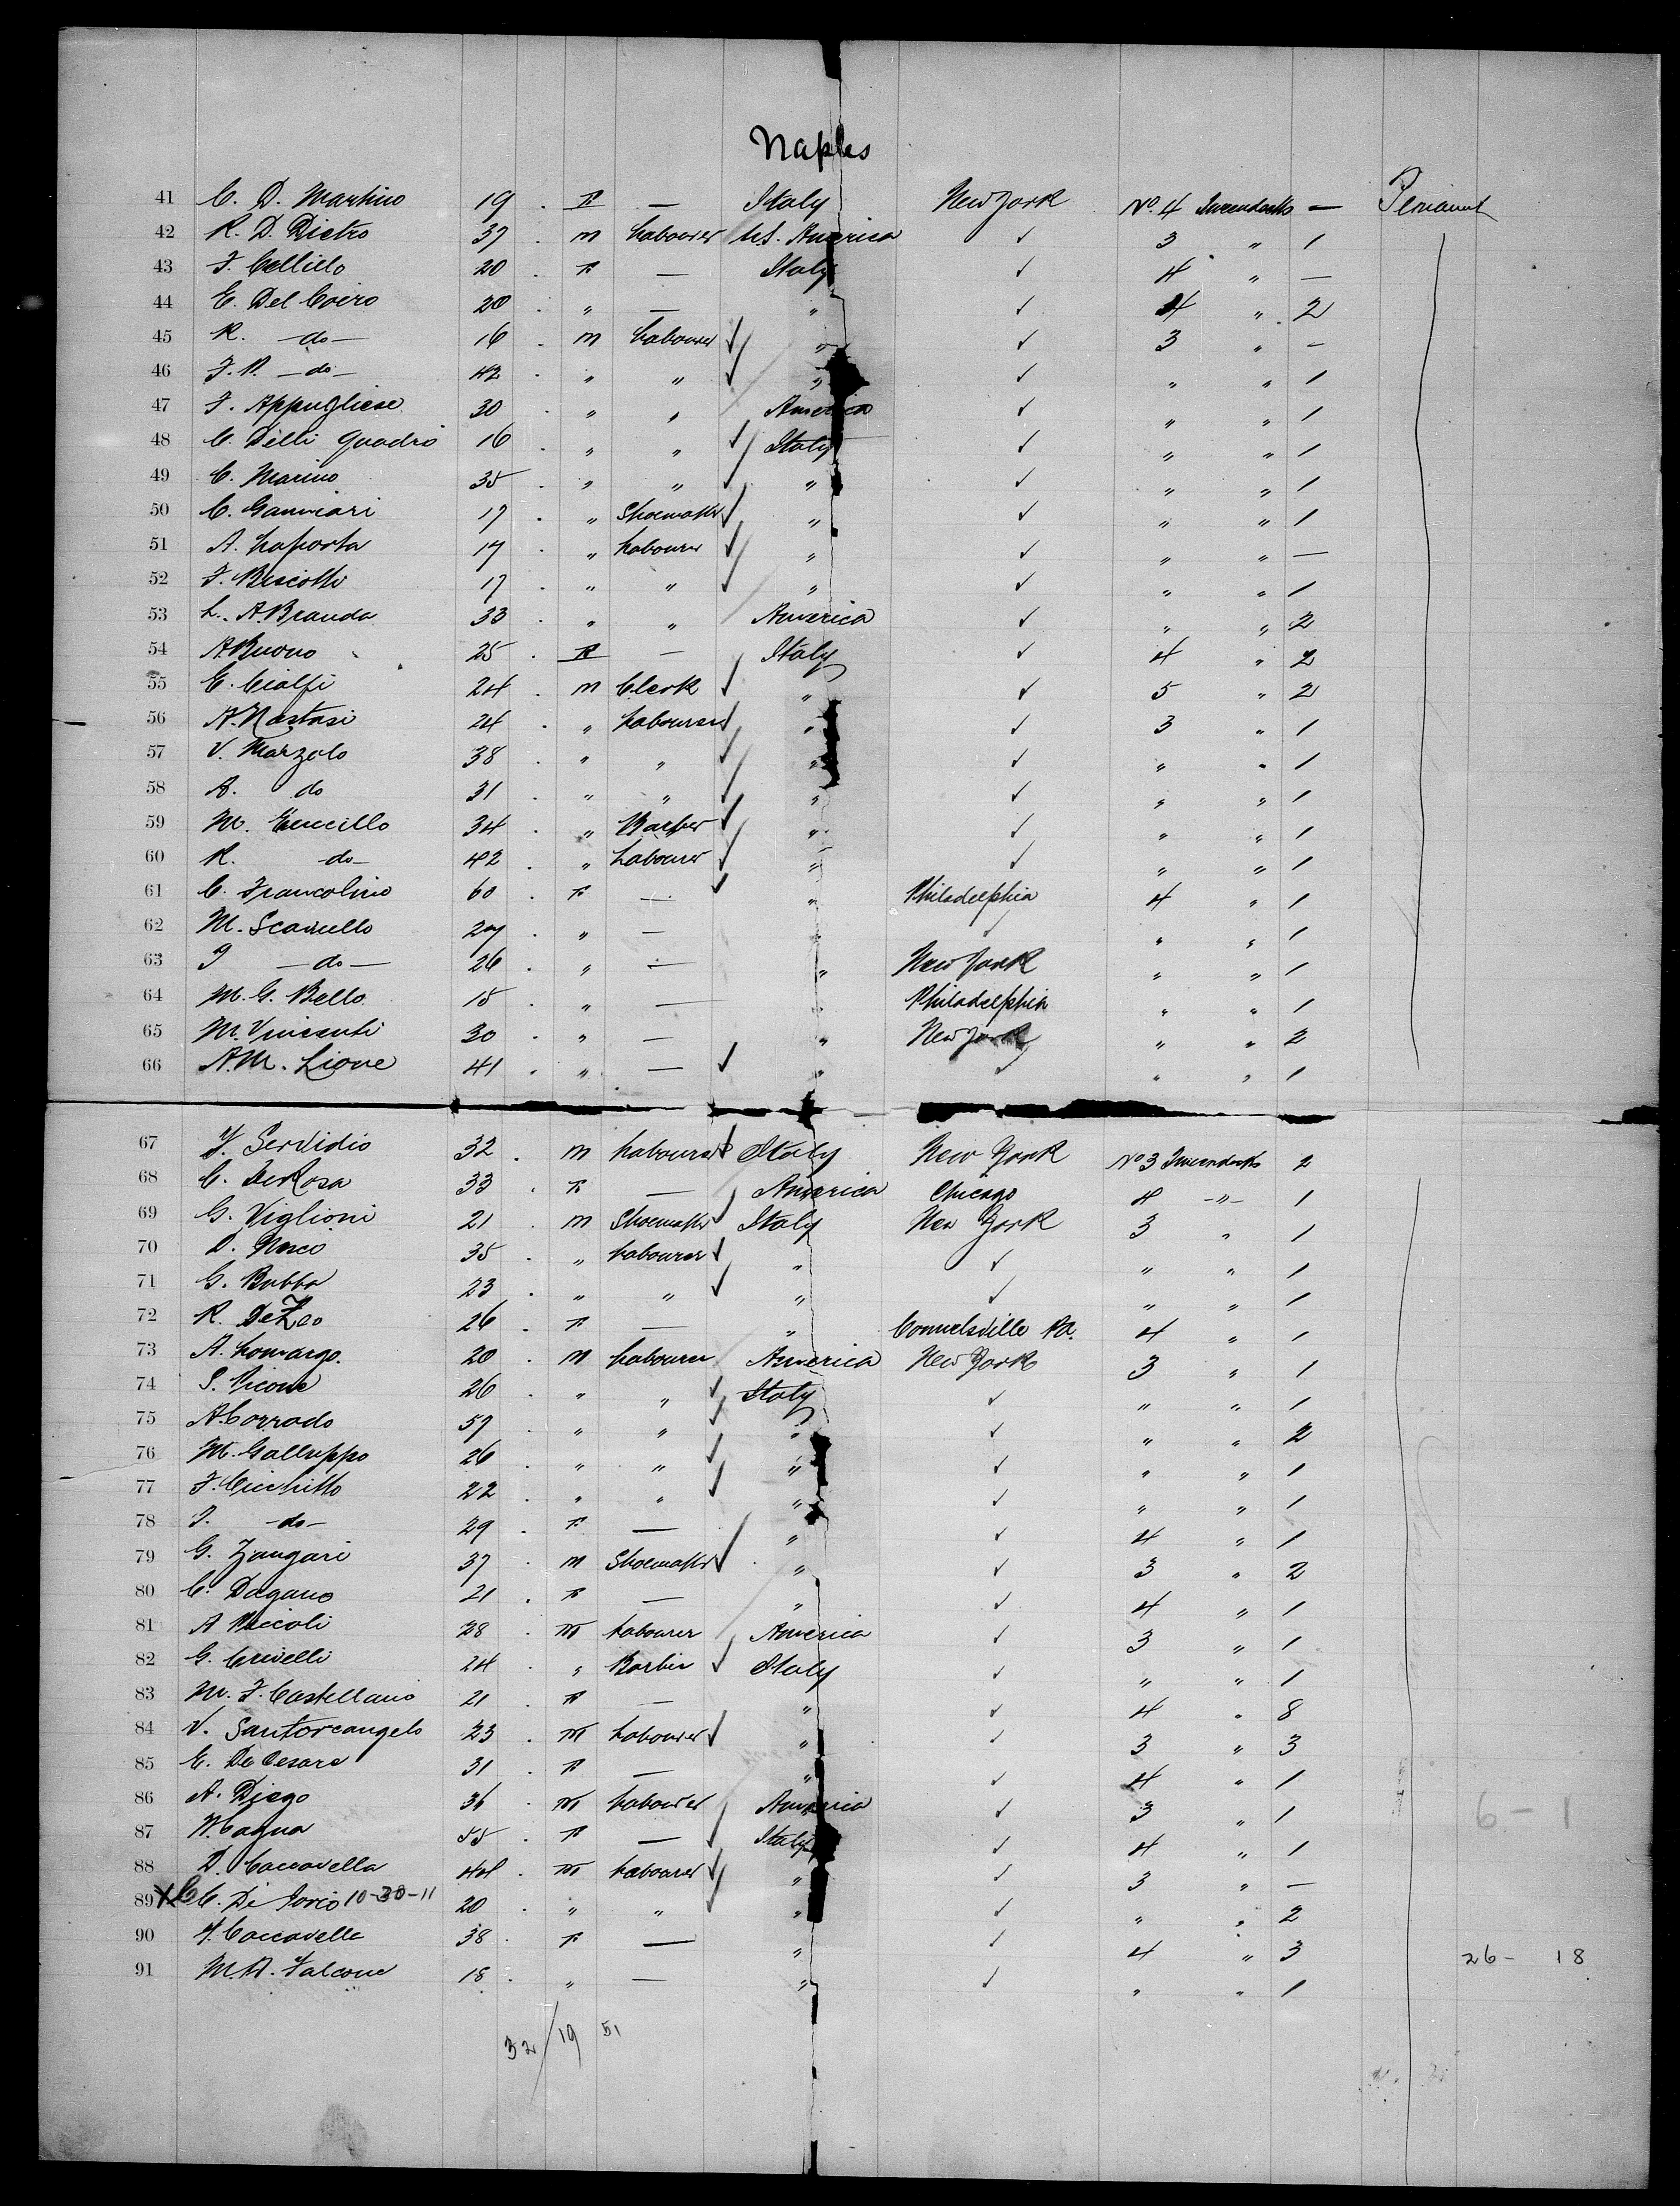 Naples
41 C. D. Martino 19 . F — Italy New York No. 4 Tweendecks — Permanent
42 R. D. Pietro 37 . m Labourer U.S. America ✓ 3 " 1
43 F. Cellilo 20 . F — Italy ✓ 4 " —
44 E. Del Coiro 20 . " — " ✓ 4 " 2
45 R. —do— 16 . m Labourer ✓ " ✓ 3 " —
46 F. P. —do— 42 . " " ✓ " ✓ " " 1
47 F. Appugliese 30 . " " America ✓ " " 1
48 C. Delli Quadri 16 . " " ✓ Italy ✓ " " 1
49 C. Marino 35 . " " ✓ " ✓ " " 1
50 C. Ganviari 17 . " Shoemaker ✓ " ✓ " " 1
51 A. Laporta 17 . " Labourer ✓ " ✓ " " —
52 F. Biscotti 17 . " " ✓ " ✓ " " 1
53 L. A. Branda 33 . " " America ✓ " " 2
54 A. Buono 25 . F — Italy ✓ 4 " 2
55 E. Cialfi 24 . m Clerk ✓ " ✓ 5 " 2
56 A. Nastasi 24 . " Labourer ✓ " ✓ 3 " 1
57 V. Marzolo 38 . " " ✓ " ✓ " " 1
58 A. do 31 . " " ✓ " ✓ " " 1
59 M. 34 . " Barber ✓ " ✓ " " 1
60 R. —do— 42 . " Labourer ✓ " ✓ " " 1
61 C. Francolino 60 . F — ✓ " Philadelphia 4 " 1
62 M. Scavullo 27 . " — ✓ " " 1
63 —do— 26 . " — " New York " " 1
64 M. G. Bello 18 . " — " Philadelphia " " 1
65 M. Vincenti 30 . " — " New York " " 2
66 A. M. Lione 41 . " — ✓ " ✓ " " 1
67 F. Servidio 32 . m Labourer ✓ Italy New York No 3 Tweendecks 2
68 C. DeRosa 33 . F — America Chicago 4 —"— 1
69 G. Viglioni 21 . m Shoemaker ✓ Italy New York 3 " 1
70 D. Nesco 35 . " Labourer ✓ " ✓ " " 1
71 G. Bubba 23 . " " ✓ " ✓ " " 1
72 R. DeZeo 26 . F — " Connelsville Pa. 4 " 1
73 A. Lomargo. 20 . m Labourer America New York 3 " 1
74 S. Picone 26 . " " ✓ Italy ✓ " " 1
75 A. Corrado 57 . " " ✓ " ✓ " " 2
76 M. Galluppo 26 . " " ✓ " ✓ " " 1
77 F. Cicchitto 22 . " " ✓ " ✓ " " 1
78 —do— 29 . F — " ✓ 4 " 1
79 G. Zangari 37 . m Shoemaker ✓ " ✓ 3 " 2
80 C. Dagano 21 . F — " ✓ 4 " 1
81 A Piccoli 28 . m Labourer America ✓ 3 " 1
82 G. Crivelli 24 . " Barber ✓ Italy ✓ " " 1
83 M. F. Castellano 21 . F — " ✓ 4 " 8
84 V. Santorcangelo 23 . m Labourer ✓ " ✓ 3 " 3
85 E. De Cesare 31 . F — " ✓ 4 " 1
86 A. Diego 36 . m Labourer America ✓ 3 " 1 6 - 1
87 Cagna 55 . F — ✓ Italy ✓ 4 " 1
88 D. Caccavella 44 . m Labourer ✓ " ✓ 3 " —
89 X C. Di Iorio 10-30-11 20 . " " ✓ " ✓ " " 2
90 F. Caccavella 38 . F — " ✓ 4 " 3 26 - 18
91 M. A. Falcone 18 . " — " ✓ " " 1
32 / 19 51